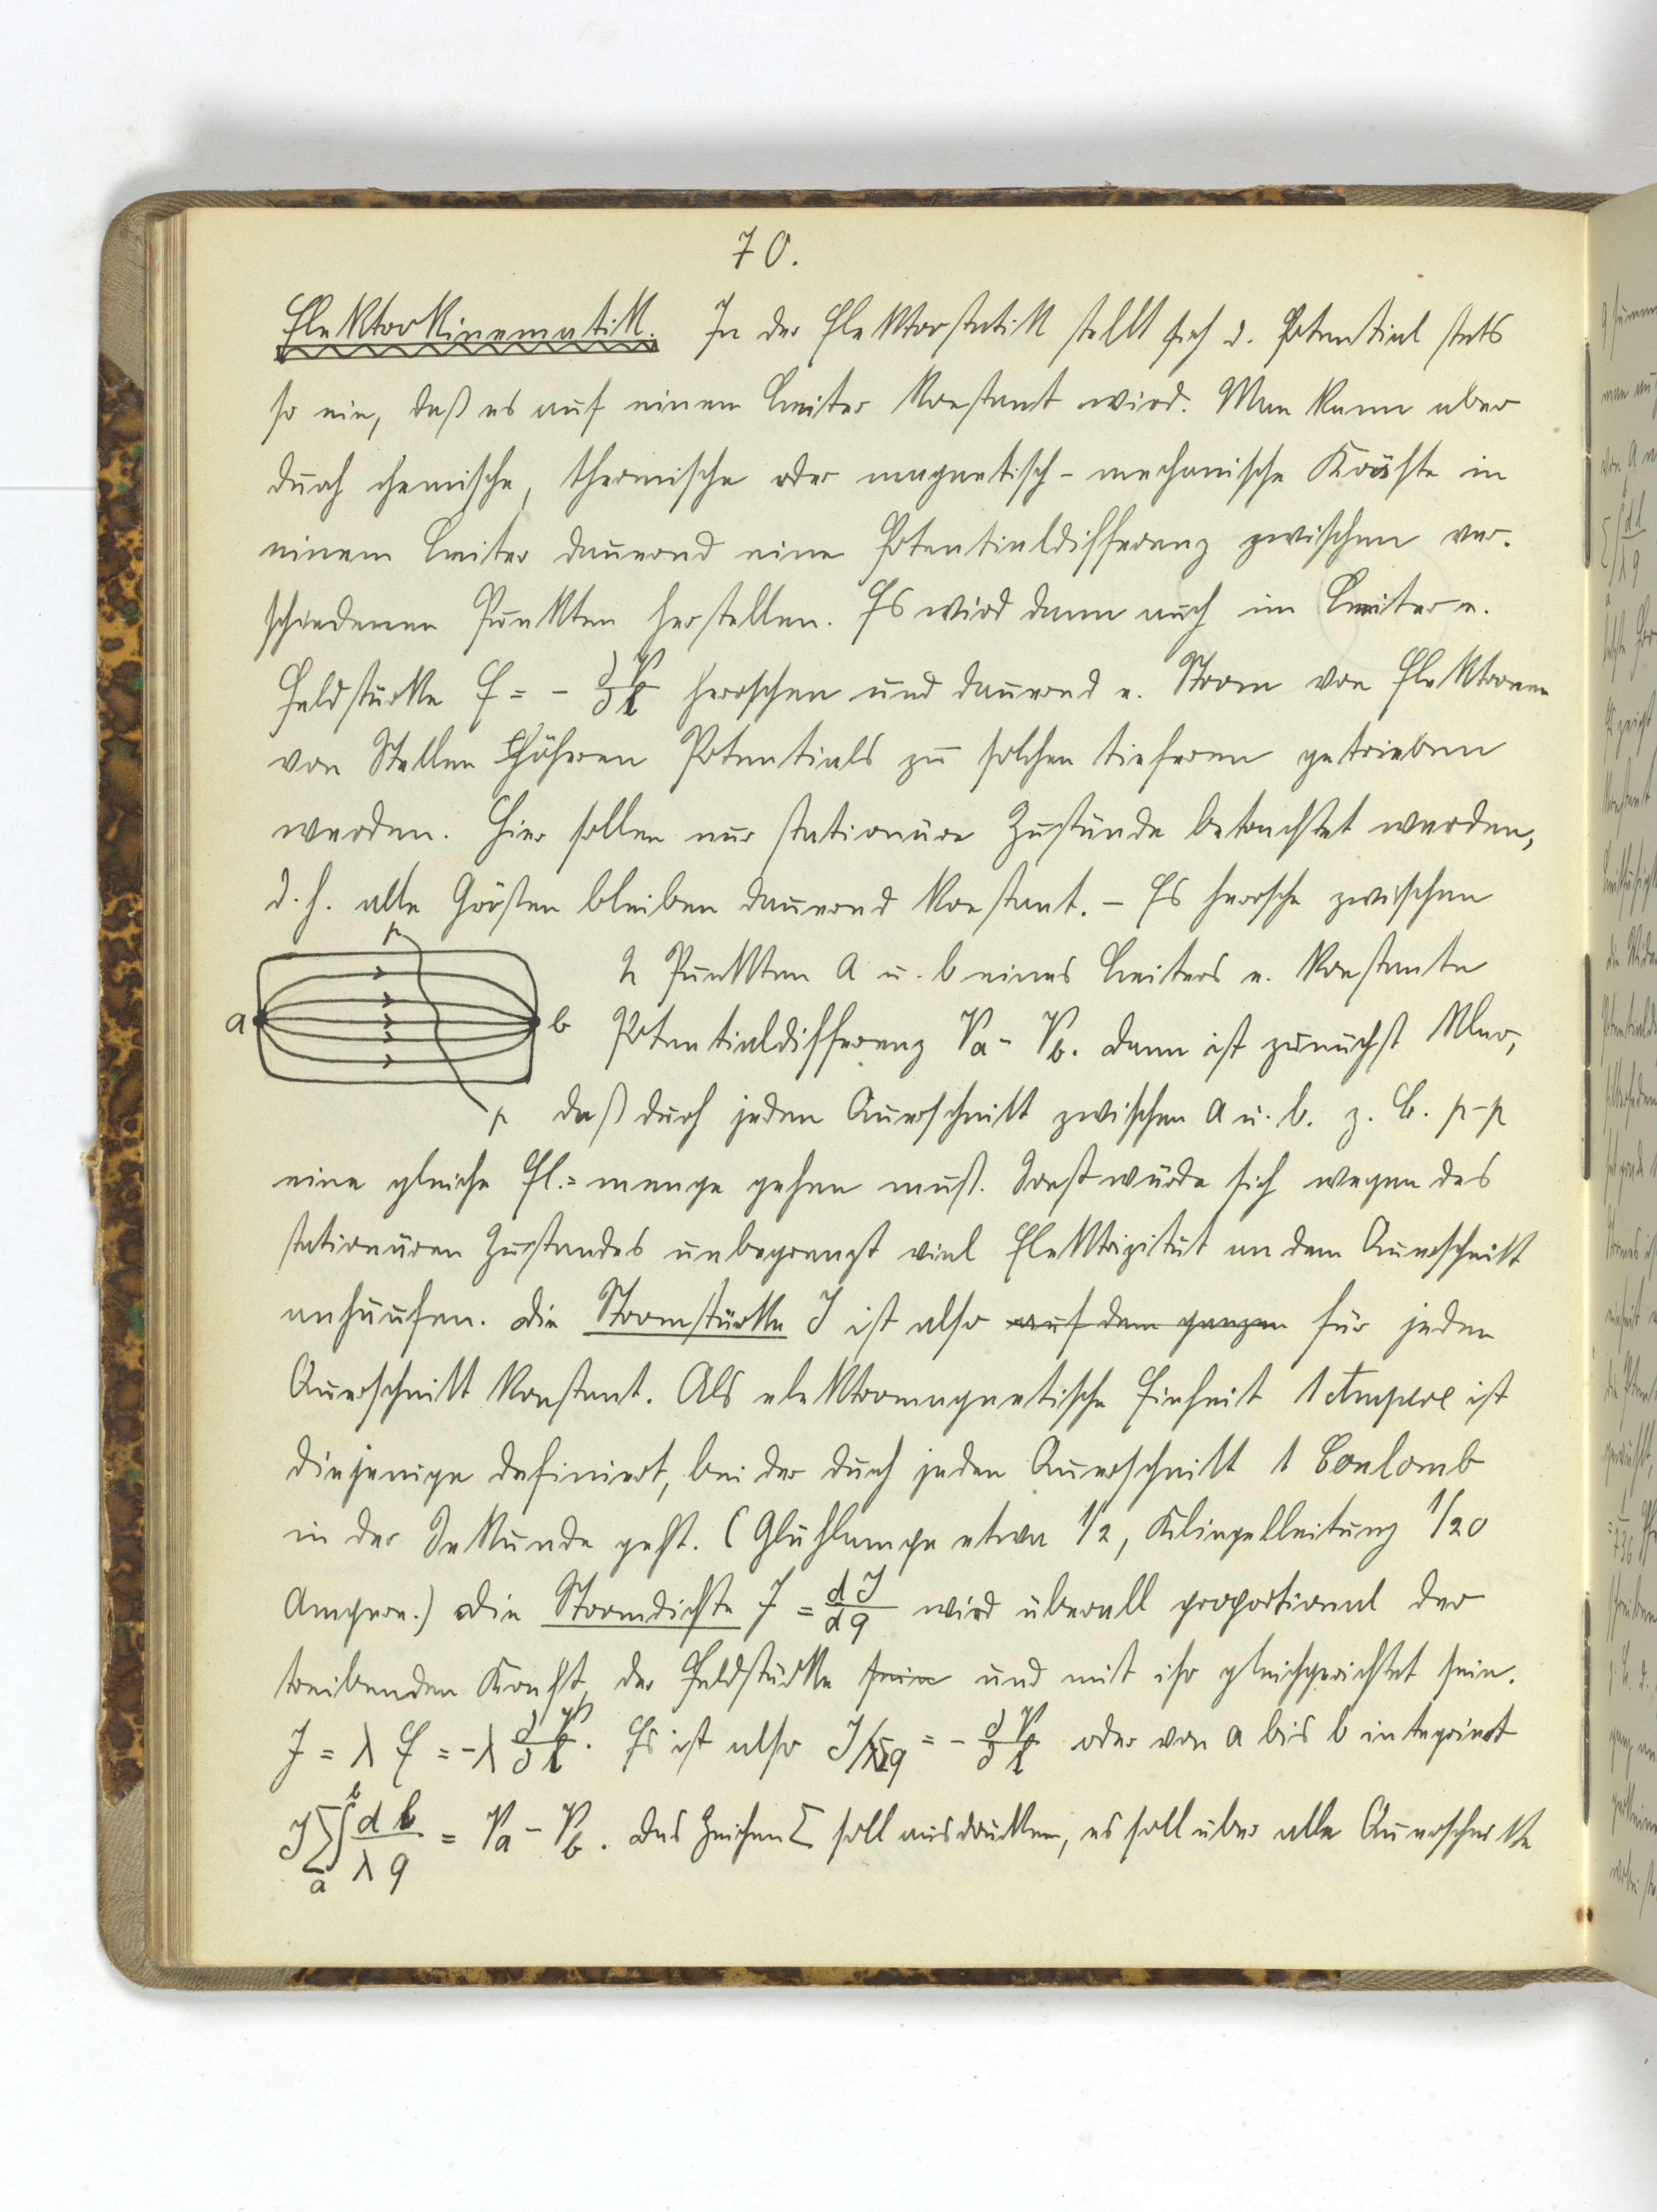 70.
Elektrokinematik. In der Elektrostatik stellt sich d. Potential stets
so ein, daß es auf einem Leiter konstant wird. Man kann aber
durch chemische, thermische oder magnetisch-mechanische Kräfte in
einem Leiter dauernd eine Potentialdifferenz zwischen ver-
schiedenen Punkten herstellen. Es wird dann auch im Leiter e.
Feldstärke E = - ∂V/∂l herrschen und dauernd e. Strom von Elektronen
von Stellen höheren Potentials zu solchen tieferen getrieben
werden. Hier sollen nur stationäre Zustände betrachtet werden,
d. h. alle Größen bleiben dauernd konstant. – Es herrsche zwischen
2 Punkten a u. b eines Leiters e. konstante
Potentialdifferenz Va - Vb. Dann ist zunächst klar,
daß durch jeden Querschnitt zwischen a u. b. z. B. p-p
eine gleiche El.=menge gehen muß. Sonst würde sich wegen des
stationären Zustandes unbegrenzt viel Elektrizität an dem Querschnitt
anhäufen. Die Stromstärke J ist also auf dem ganzen für jeden
Querschnitt konstant. Als elektromagnetische Einheit 1 Ampere ist
diejenige definiert, bei der durch jeden Querschnitt 1 Coulomb
in der Sekunde geht. (Glühlampe etwa 1/2, Klingelleitung 1/20
Ampere.) Die Stromdichte J = dJ/dq wird überall proportional der
treibenden Kraft, der Feldstärke sein und mit ihr gleichgerichtet sein.
J = λ E = -λ ∂V/∂l. Es ist also J/λq = - ∂V/∂l oder von a bis b integriert
J Σ∫ₐᵇ dl/λq = Va - Vb. Das Zeichen Σ soll ausdrücken, es soll über alle Querschnitte
a
b
p
p